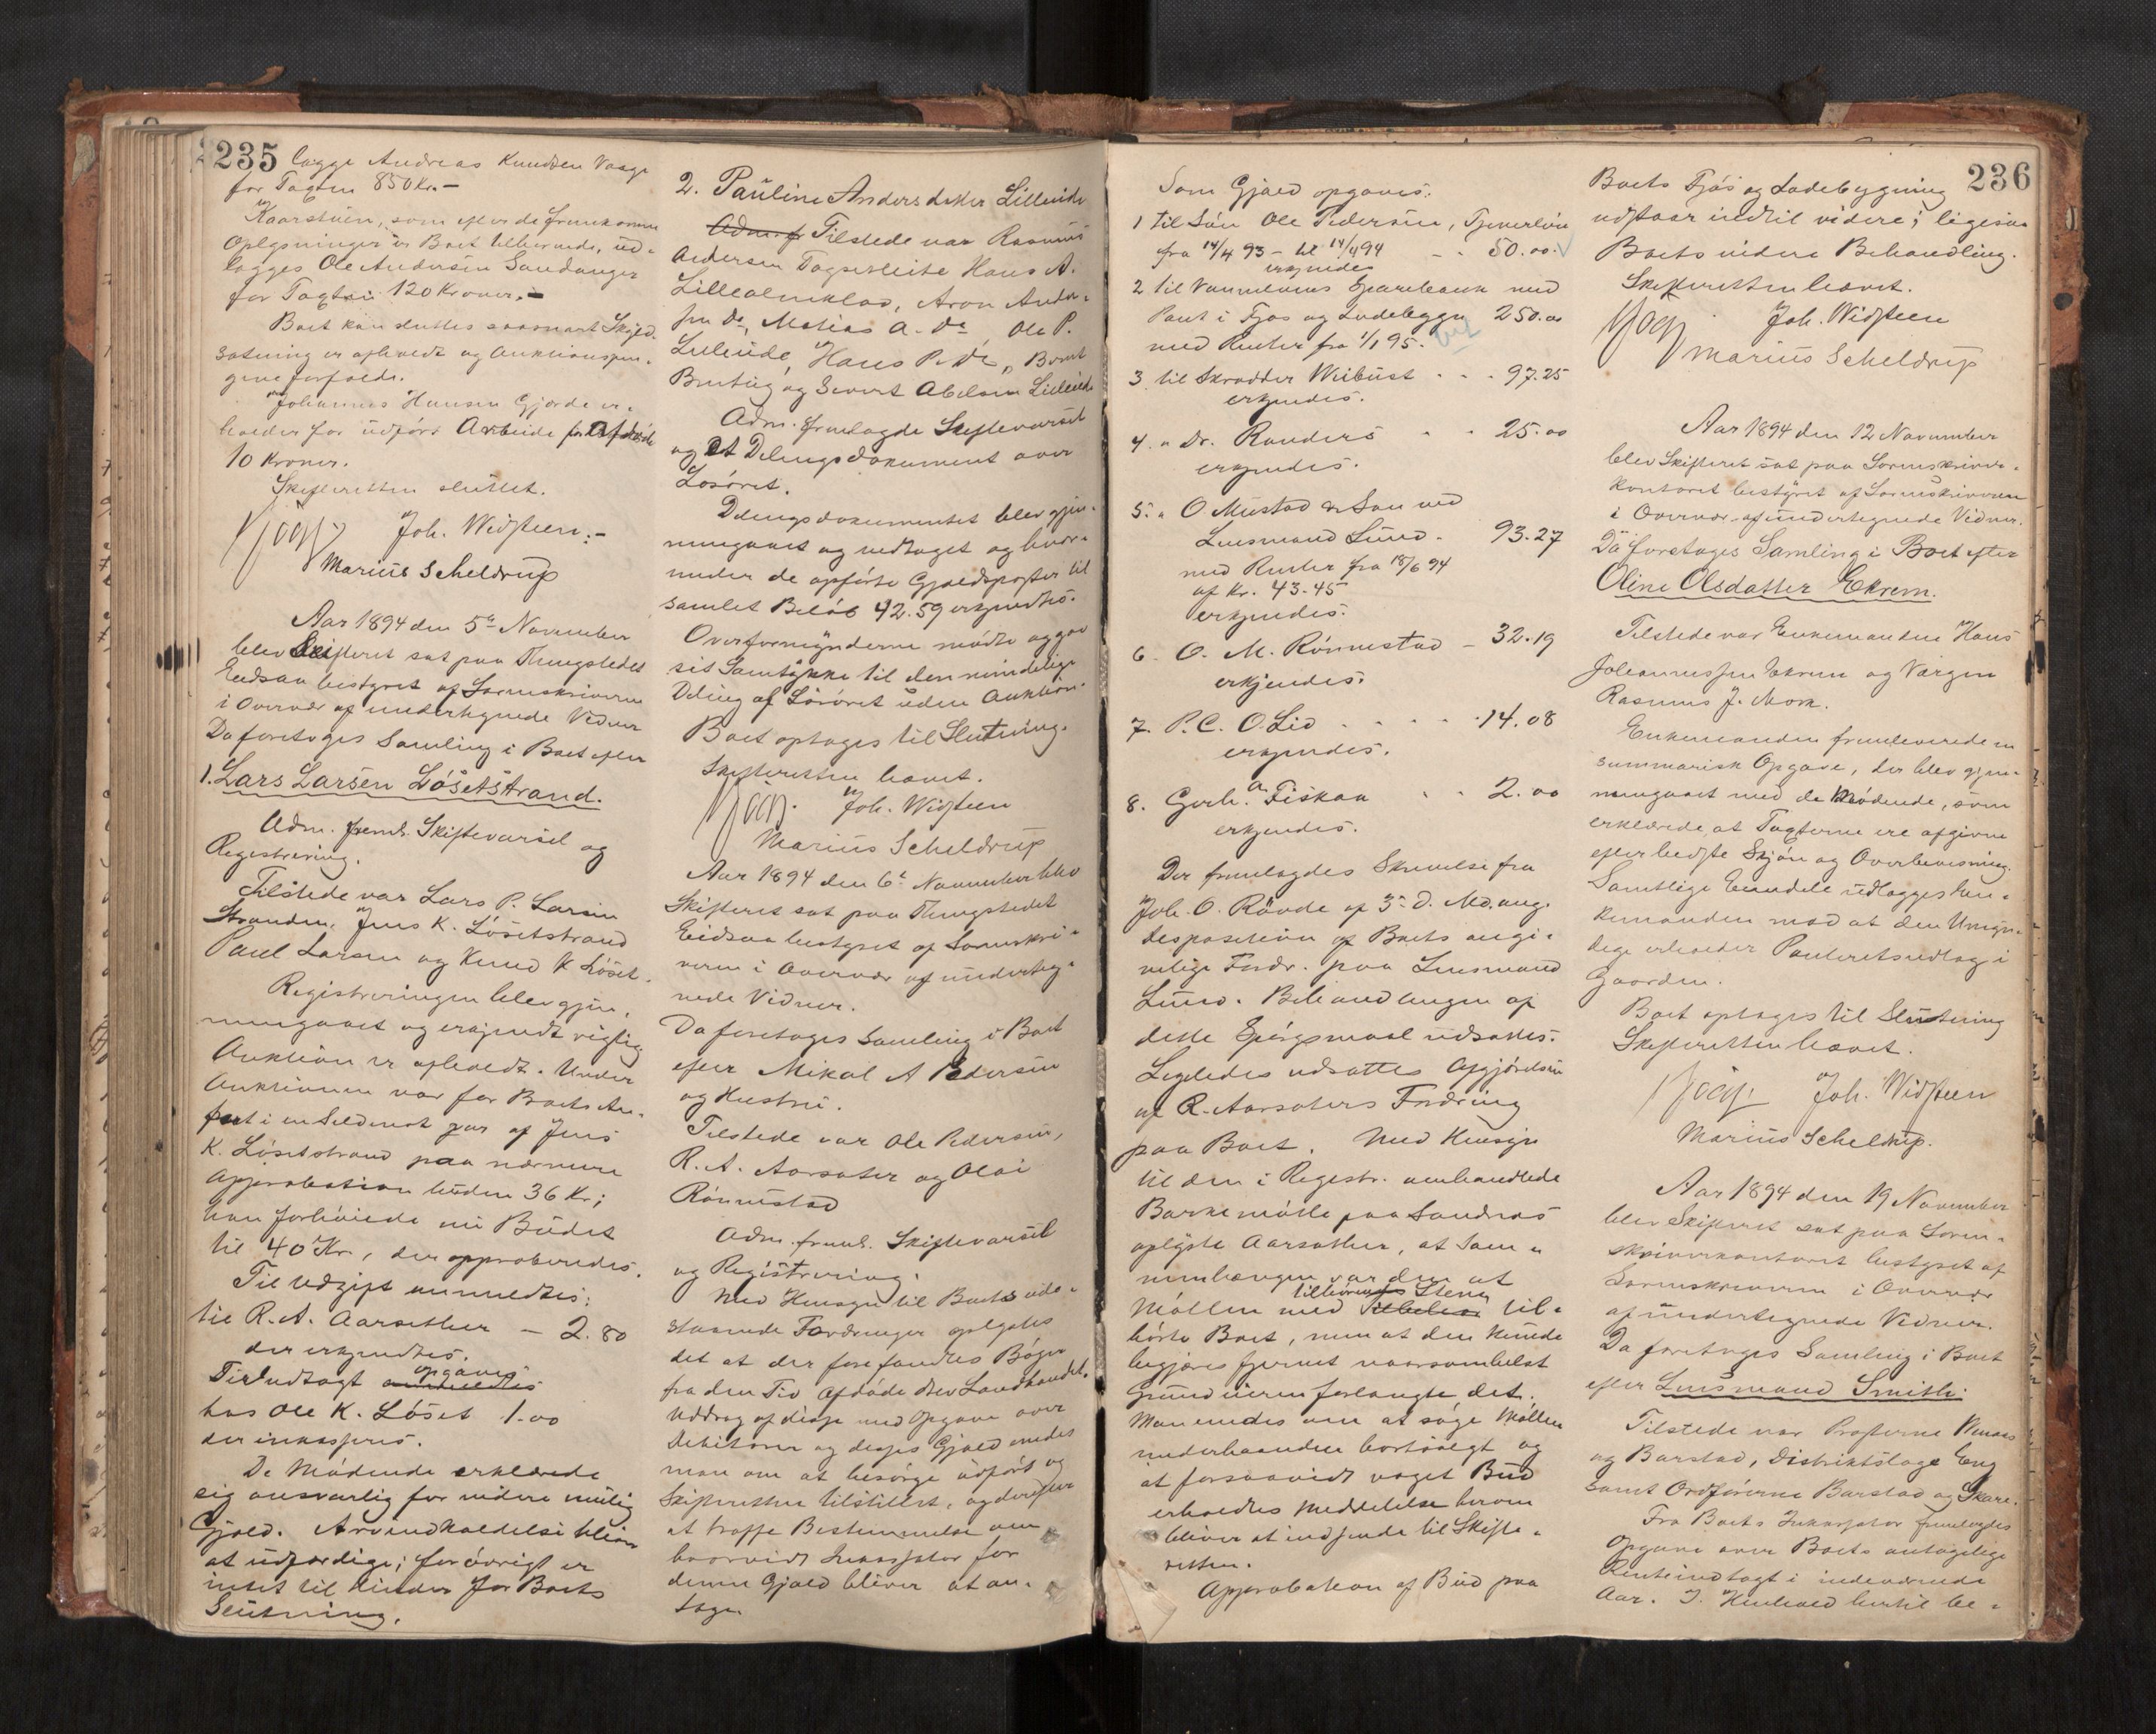 235
lægge Andreas Knudsen Vaage
for Taxten 850 Kr. –
Kaarstuen, som efter de fremkomne
Oplysninger er Boet tilhørende, ud-
lægges Ole Andersen Sandanger
for Taxten 120 Kroner. –
Boet kan sluttes saasnart Skjød-
sætning er ophævet og Auktionspen-
gene forfaldt.
Johannes Hansen Gjerde er-
holder for udført Arbeide for Afdøde
10 Kroner.
Skifteretten sluttet.
Joh. Widsteen. –
Marius Scheldrup
Aar 1894 den 5te November
blev Skifteret sat paa Thingstedet
Eidsaa bestyret af Sorenskriveren
i Overvær af undertegnede Vidner
Da foretoges Samling i Boet efter
1. Lars Larsen Løsetstrand.
Adm. freml. Skiftevarsel og
Registrering.
Tilstede var Lars P. Larsen
Stranden, Jens K. Løsetstrand
Paul Larsen og Knud K Løset.
Registreringen blev gjen-
nemgaaet og erkjendt rigtig
Auktion er afholdt. Under
Auktionen var for Boets An-
part i en Sildenot gav af Jens
K. Løsetstrand paa nærmere
Approbation buden 36 Kr;
han forhøiede nu Budet
til 40 Kr, der approberedes.
Til Udgift anmeldtes:
til R. A. Aarsether – 2.80
der erkjendtes.
Til Indtægt opgaves
hos Ole K. Løset 1.00
der inkasseres.
De Mødende erklærede
sig ansvarlig for videre mulig
Gjæld. Arveindkaldelse bliver
at udfærdige; forøvrigt er
intet til Hinder for Boets
Slutning.
2. Pauline Andersdatter Lilleeide
Adm. fr Tilstede var Rasmus
Andersen Hans A.
Lilleeide, Aron Ander-
sen Do, Matias A. Do, Ole P.
Lilleeide, Hans P. Do, Bernt
og Sivert Abelsen Lilleeide
Adm. fremlagde Skiftevarsel
og et Delingsdokument over
Løsøret.
Delingsdokumentet blev gjen-
nemgaaet og vedtaget og hvor-
under de opførte Gjældsposter til
samlet Beløb 42.59 erkjendtes.
Overformynderne mødte og gav
sit Samtykke til den mindelige
Deling af Løsøret uden Auktion.
Boet optages til Slutning.
Skifteretten hævet.
Joh. Widsteen
Marius Scheldrup
Aar 1894 den 6te November blev
Skifteret sat paa Thingstedet
Eidsaa bestyret af Sorenskri-
veren i Overvær af underteg-
nede Vidner.
Da foretoges Samling i Boet
efter Mikal A Pedersen
og Hustru.
Tilstede var Ole Pedersen,
R. A. Aarsæter og Olai
Rønnestad
Adm. freml. Skiftevarsel
og Registrering.
Med Hensyn til Boets ude-
staaende Fordringer oplystes
det at der forefandtes Bøger
fra den Tid Afdøde drev Landhandel.
Uddrag af disse med Opgave over
Debitorer og deres Gjæld anmodes
man om at besørge udført og
Skifteretten tilstillet, og derefter
at træffe Bestemmelse om
hvorvidt Inkassator for
denne Gjæld bliver at an-
tage
236
Som Gjæld opgaves:
1 til Søn Ole Pedersen, Tjenerløn
fra 14/4 93 – til 14/4 94 – 50.00
erkjendes
2 til Vannelvens Sparebank med
Pant i Fjøs og Ladebygn 250.00
med Renter fra 1/1 95.
3 til Skrædder Weibust 97.25
erkjendes.
4. " Dr. Randers 25.00
erkjendes.
5. " O Mustad & Søn ved
Lensmand Lund. 93.27
med Renter fra 18/6 94
af Kr. 43.45
erkjendes.
6. O. M. Rønnestad – 32.19
erkjendes.
7. P. C. O. Lid 14.08
erkjendes.
8. Gerh. A. Fiskaa 2.00
erkjendes.
Der fremlagdes Skrivelse fra
Joh. O. Røvde af 3. d. Md. ang.
Disposition af Boets angi-
velige Fordr. paa Lensmand
Lund. Behandlingen af
dette Spørgsmaal udsattes.
Ligeledes udsattes Afgjørelsen
af R. Aarsæters Fordring
paa Boet. Med Hensyn
til den i Registr. omhandlede
Barkemølle paa Sandnes
oplyste Aarsæther, at Sam-
menhængen var den at
Møllen med tilhørende Stene til-
hørte Boet, men at den kunde
begjæres fjernet naarsomhelst
Grundeieren forlangte det.
Man enedes om at søge Møllen
underhaanden bortsolgt og
at forsaavidt noget Bud
erholdtes Meddelelse herom
bliver at indsende til Skifte-
retten.
Approbation af Bud paa
Boets Fjøs og Ladebygning
udstaar indtil videre; ligesaa
Boets videre Behandling.
Skifteretten hævet.
Joh. Widsteen
Marius Scheldrup
Aar 1894 den 12 November
blev Skifteret sat paa Sorenskriver-
kontoret bestyret af Sorenskriveren
i Overvær af undertegnede Vidner.
Da foretoges Samling i Boet efter
Oline Olsdatter Ekrem.
Tilstede var Enkemanden Hans
Johannessen Ekrem og Værgen
Rasmus J. Mork.
Enkemanden fremleverede en
summarisk Opgave, der blev gjen-
nemgaaet med de Mødende, som
erklærede, at Taxterne ere afgivne
efter bedste Skjøn og Overbevisning.
Samtlige Eiendele udlægges En-
kemanden mod at den Umyn-
dige erholder Panteretsudlæg i
Gaarden.
Boet optages til Slutning
Skifteretten hævet.
Joh. Widsteen
Marius Scheldrup.
Aar 1894 den 19 November
blev Skifteret sat paa Soren-
skriverkontoret bestyret af
Sorenskriveren i Overvær
af undertegnede Vidner.
Da foretoges Samling i Boet
efter Lensmand Smith.
Tilstede var
og Barstad, Distriktslæge Eng
samt Ordførerne Barstad og Skare.
Fra Boets Inkassator fremlagdes
Opgave over Boets antagelige
Renteindtægt i indeværende
Aar. I Henhold hertil be-